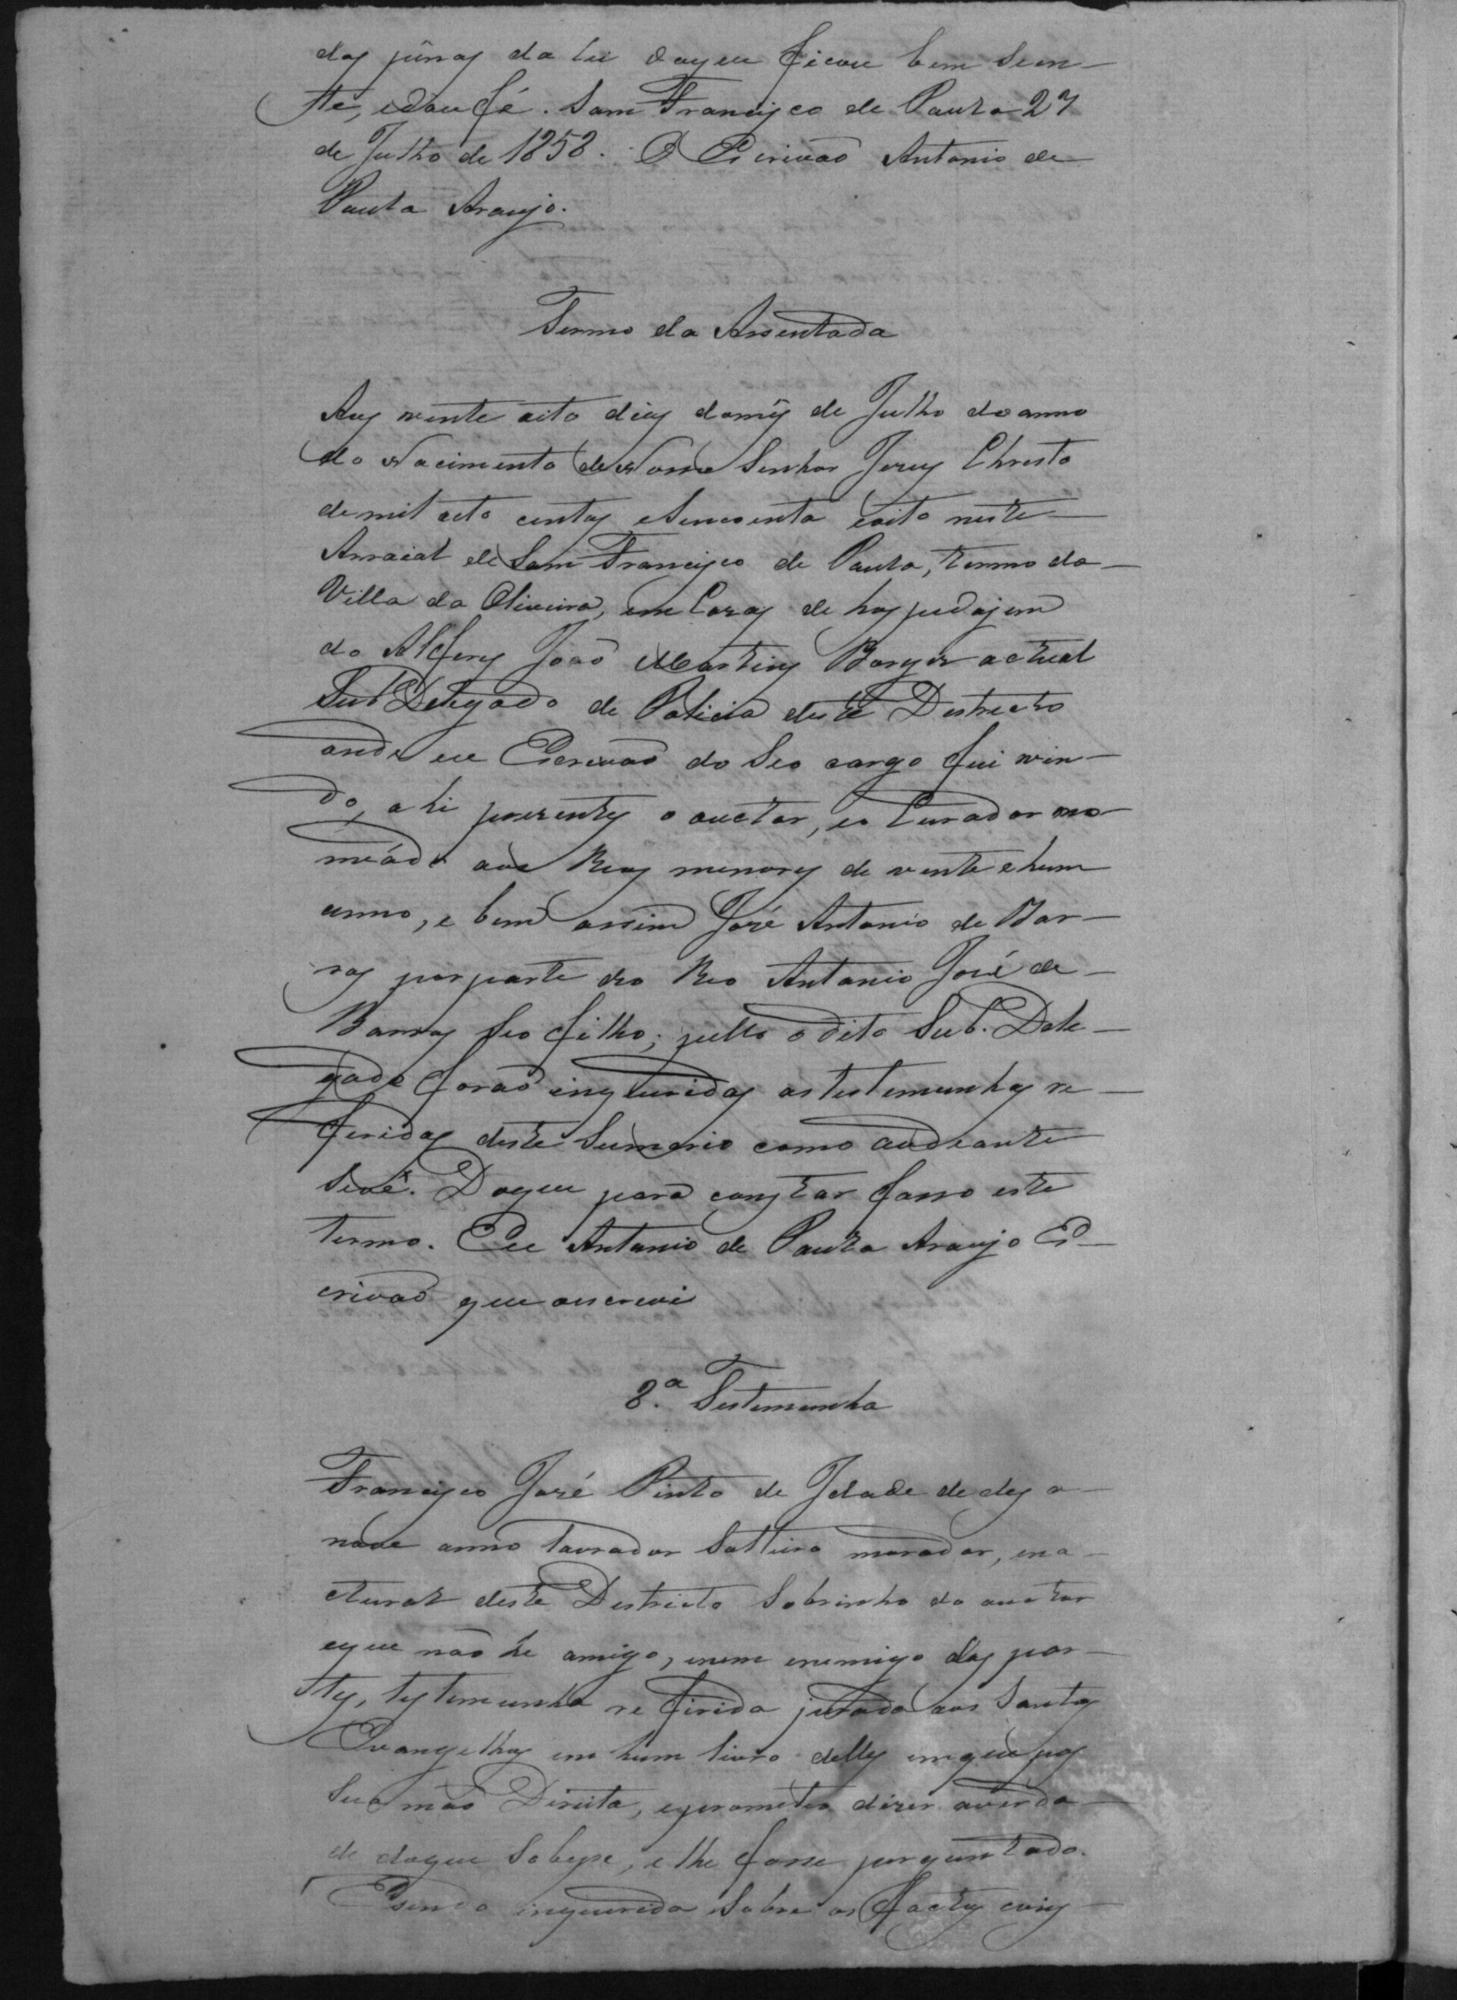 das pênas da lei doque ficou bem scien-
te, edou fé. Sam Francisco de Paula 27
de Julho de 1858. O Escrivaõ Antonio de
Paula Araujo.
Termo da Assentada
Aos vente oito dias domês de Julho do anno
do Nacimento de Nosso Senhor Jesus Christo
de mil oito centos esincoenta eoito neste
Arraial de Sam Francisco de Paula, termo da
Villa da Oliveira, em Casas de hospedajem
do Alferes Joaõ Martins Borges actual
Sub Delegado de Policia deste Destrecto
onde eu Escrivaõ do Seo cargo fui vin-
do, ahi presentes o auctor, eo Curador no
meádo aos Reos menores de vente ehum
anno, e bem assim José Antonio de Bar-
ros por parte do Reo Antonio José de
Barros seo filho; pello o dito Sub. Dele-
gado foraõ inqueridas as testemunhas re-
feridas deste Sumario como audeante
Severá. Doque para constar fasso este
termo. Eu Antonio de Paula Araujo Es-
crivaõ que oescrevi
8.ª Testemunha
Francisco José Pinto de Idade de des a-
nove anno lavrador Solteiro morador, ena-
ctural deste Destricto Sobrinho do auctor
eque não hé amigo, enem enemigo das par-
tes, testemunha referida jurada aos Santos
Evangelhos em hum livro delles emque pos
Sua maõ Direita, eprometeo dizer averda-
de doque Sobese, e lhe fosse perguntado.
Esendo inquerida Sobre os factos cons-